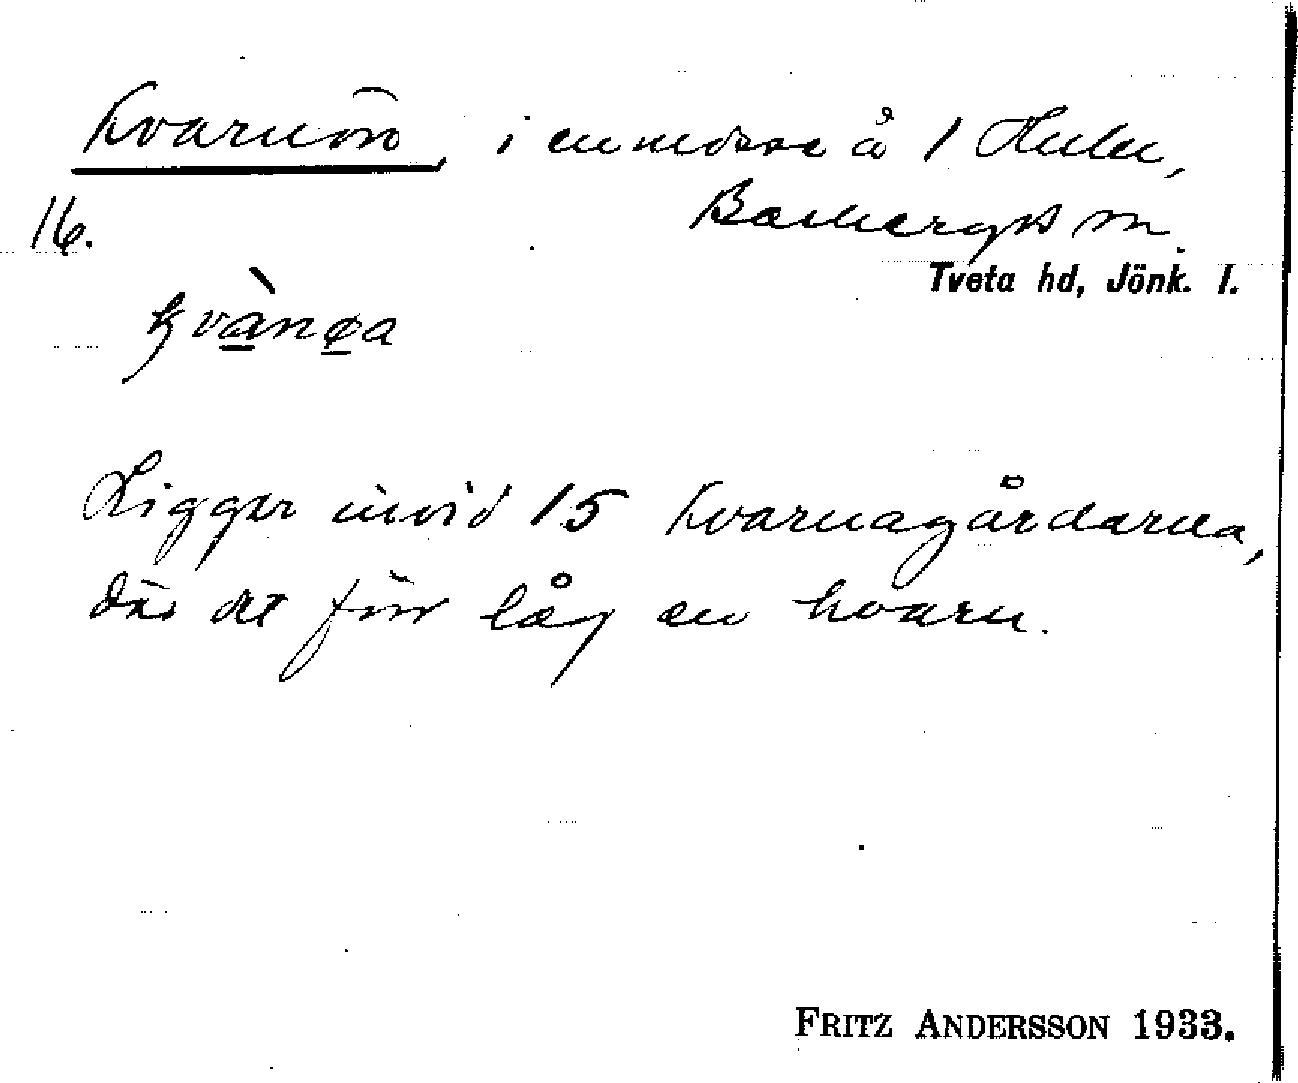 Kvarnön, i en mosse å 1 Hulu,
Barkeryds sn.
16.
Tveta hd, Jönk. l.
kvànøa
Ligger invid 15 Kvarnagårdarna,
där det förr låg en kvarn.
FRITZ ANDERSSON 1933.